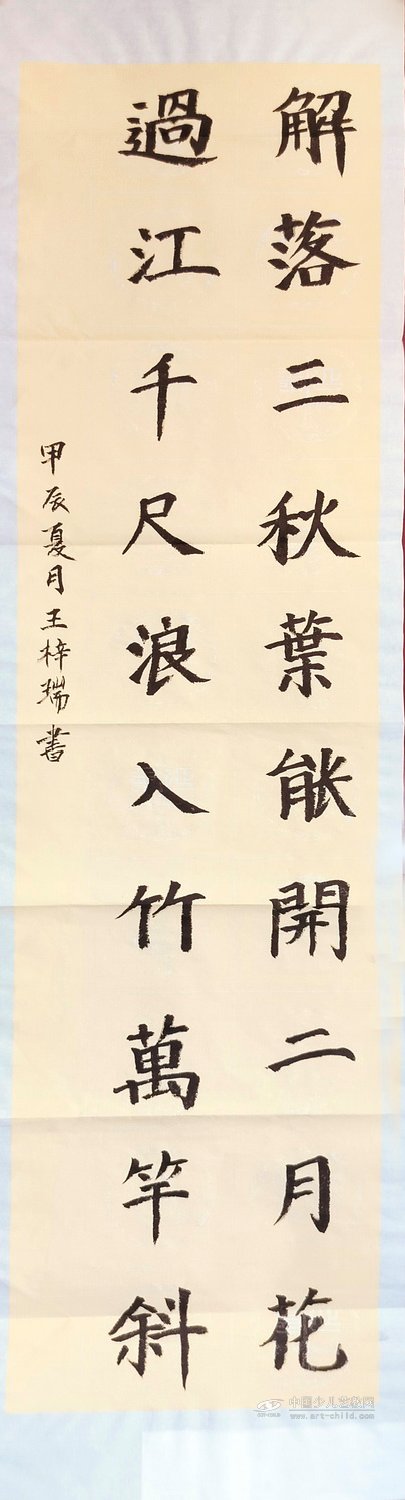 解落三秋葉能開二月花
過江千尺浪入竹萬竿斜
甲辰夏月王梓瑞書
中国少儿艺教网
www.art-child.com